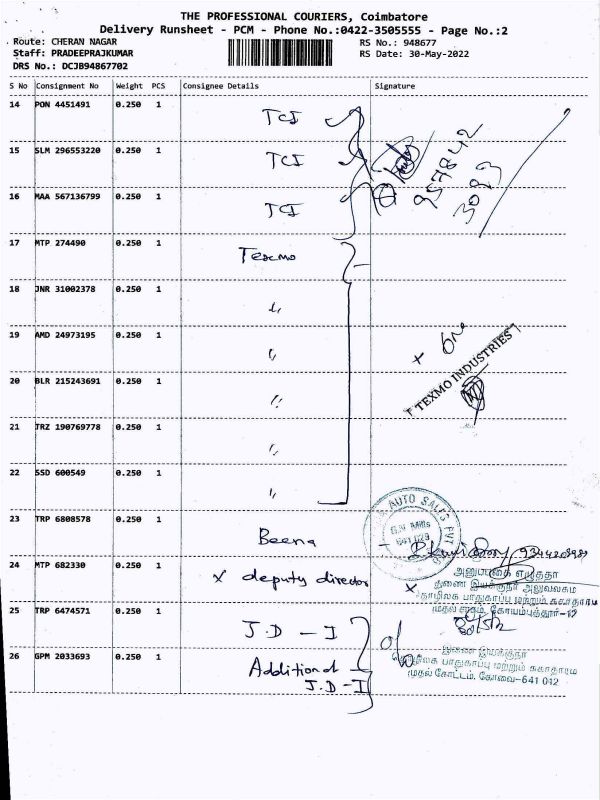 THE PROFESSIONAL COURIERS, Coimbatore
Delivery Runsheet - PCM - Phone No.:0422-3505555 - Page No.:2
Route: CHERAN NAGAR RS No.: 948677
Staff: PRADEEPRAJKUMAR RS Date: 30-May-2022
DRS No.: DCJB94867702
S No Consignment No Weight PCS Consignee Details Signature
14 PON 4451491 0.250 1 TCI
15 SLM 296553220 0.250 1 TCI
16 MAA 567136799 0.250 1 TCI
17 MTP 274490 0.250 1 Texmo
18 JNR 31002378 0.250 1 "
19 AMD 24973195 0.250 1 "
20 BLR 215243691 0.250 1 "
TEXMO INDUSTRIES
21 TRZ 190769778 0.250 1 "
22 SSD 600549 0.250 1 "
AUTO SALES PVT
G.N Mills
641 029
23 TRP 6808578 0.250 1 Beena
24 MTP 682330 0.250 1 x deputy director x
துணை இயக்குநர் அலுவலகம்
25 TRP 6474571 0.250 1 J.D - I
முதல் சரகம், கோயம்புத்தூர்-12
26 GPM 2033693 0.250 1 Additional J.D - I
இணை இயக்குநர்
தொழிலக பாதுகாப்பு மற்றும் சுகாதாரம்
முதல் கோட்டம், கோவை-641 012